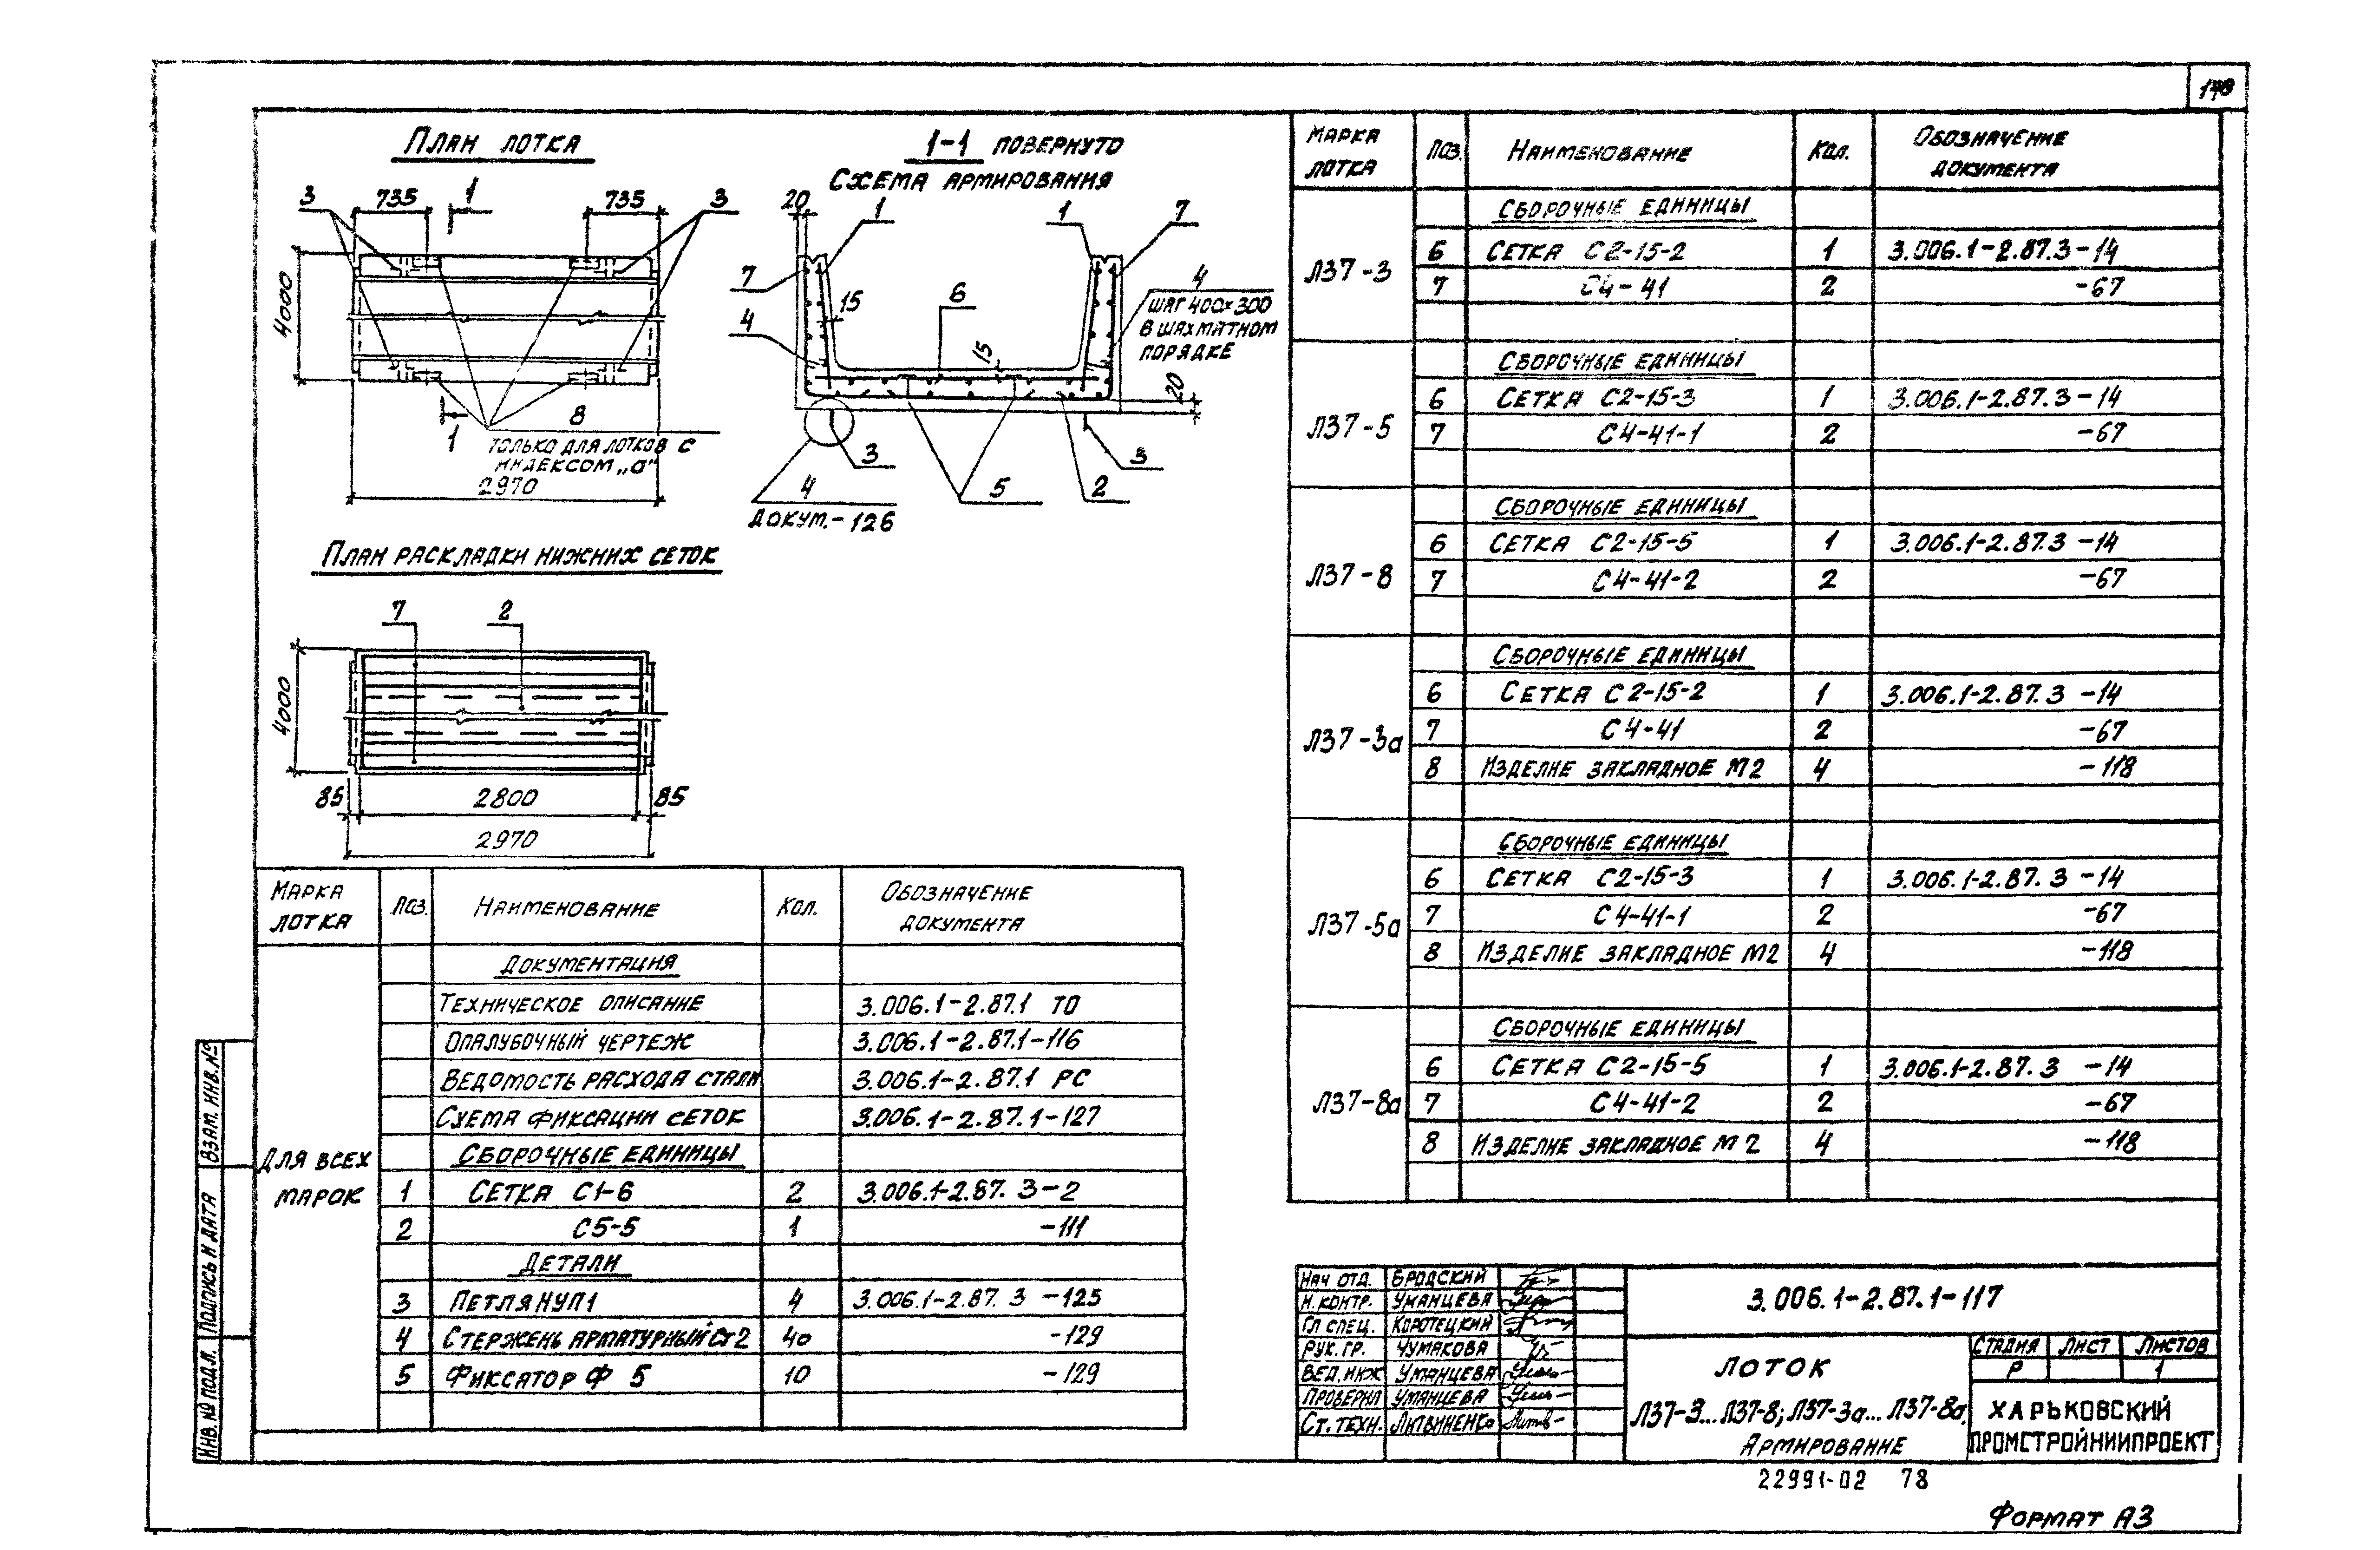 План лотка
3
735
1
735
3
4000
8
только для лотков с
индексом „а"
1
2970
1-1 повернуто
Схема армирования
20
1
1
7
7
15
6
4
4
шаг 400×300
в шахматном
порядке
15
20
3
3
4
5
2
докум.-126
План раскладки нижних сеток
7
2
4000
85
2800
85
2970
Марка лотка | Поз. | Наименование | Кол. | Обозначение документа
Для всех марок
Документация
Техническое описание 3.006.1-2.87.1 ТО
Опалубочный чертеж 3.006.1-2.87.1-116
Ведомость расхода стали 3.006.1-2.87.1 РС
Схема фиксации сеток 3.006.1-2.87.1-127
Сборочные единицы
1 Сетка С1-6 2 3.006.1-2.87.3-2
2 С5-5 1 -111
Детали
3 Петля НУП1 4 3.006.1-2.87.3 -125
4 Стержень арматурный Ст2 40 -129
5 Фиксатор Ф 5 10 -129
Марка лотка | Поз. | Наименование | Кол. | Обозначение документа
Л37-3
Сборочные единицы
6 Сетка С2-15-2 1 3.006.1-2.87.3-14
7 С4-41 2 -67
Л37-5
Сборочные единицы
6 Сетка С2-15-3 1 3.006.1-2.87.3-14
7 С4-41-1 2 -67
Л37-8
Сборочные единицы
6 Сетка С2-15-5 1 3.006.1-2.87.3-14
7 С4-41-2 2 -67
Л37-3а
Сборочные единицы
6 Сетка С2-15-2 1 3.006.1-2.87.3 -14
7 С4-41 2 -67
8 Изделие закладное М2 4 -118
Л37-5а
Сборочные единицы
6 Сетка С2-15-3 1 3.006.1-2.87.3 -14
7 С4-41-1 2 -67
8 Изделие закладное М2 4 -118
Л37-8а
Сборочные единицы
6 Сетка С2-15-5 1 3.006.1-2.87.3 -14
7 С4-41-2 2 -67
8 Изделие закладное М2 4 -118
Взам. инв. №
Подпись и дата
Инв. № подл.
Нач отд. Бродский
Н.контр. Уманцева
Гл спец. Коротецкий
Рук. гр. Чумакова
Вед.инж Уманцева
Проверил Уманцева
Ст.техн. Литвиненко
3.006.1-2.87.1-117
Лоток
Л37-3...Л37-8; Л37-3а...Л37-8а.
Армирование
Стадия Лист Листов
Р 1
Харьковский
Промстройниипроект
22991-02 78
Формат А3